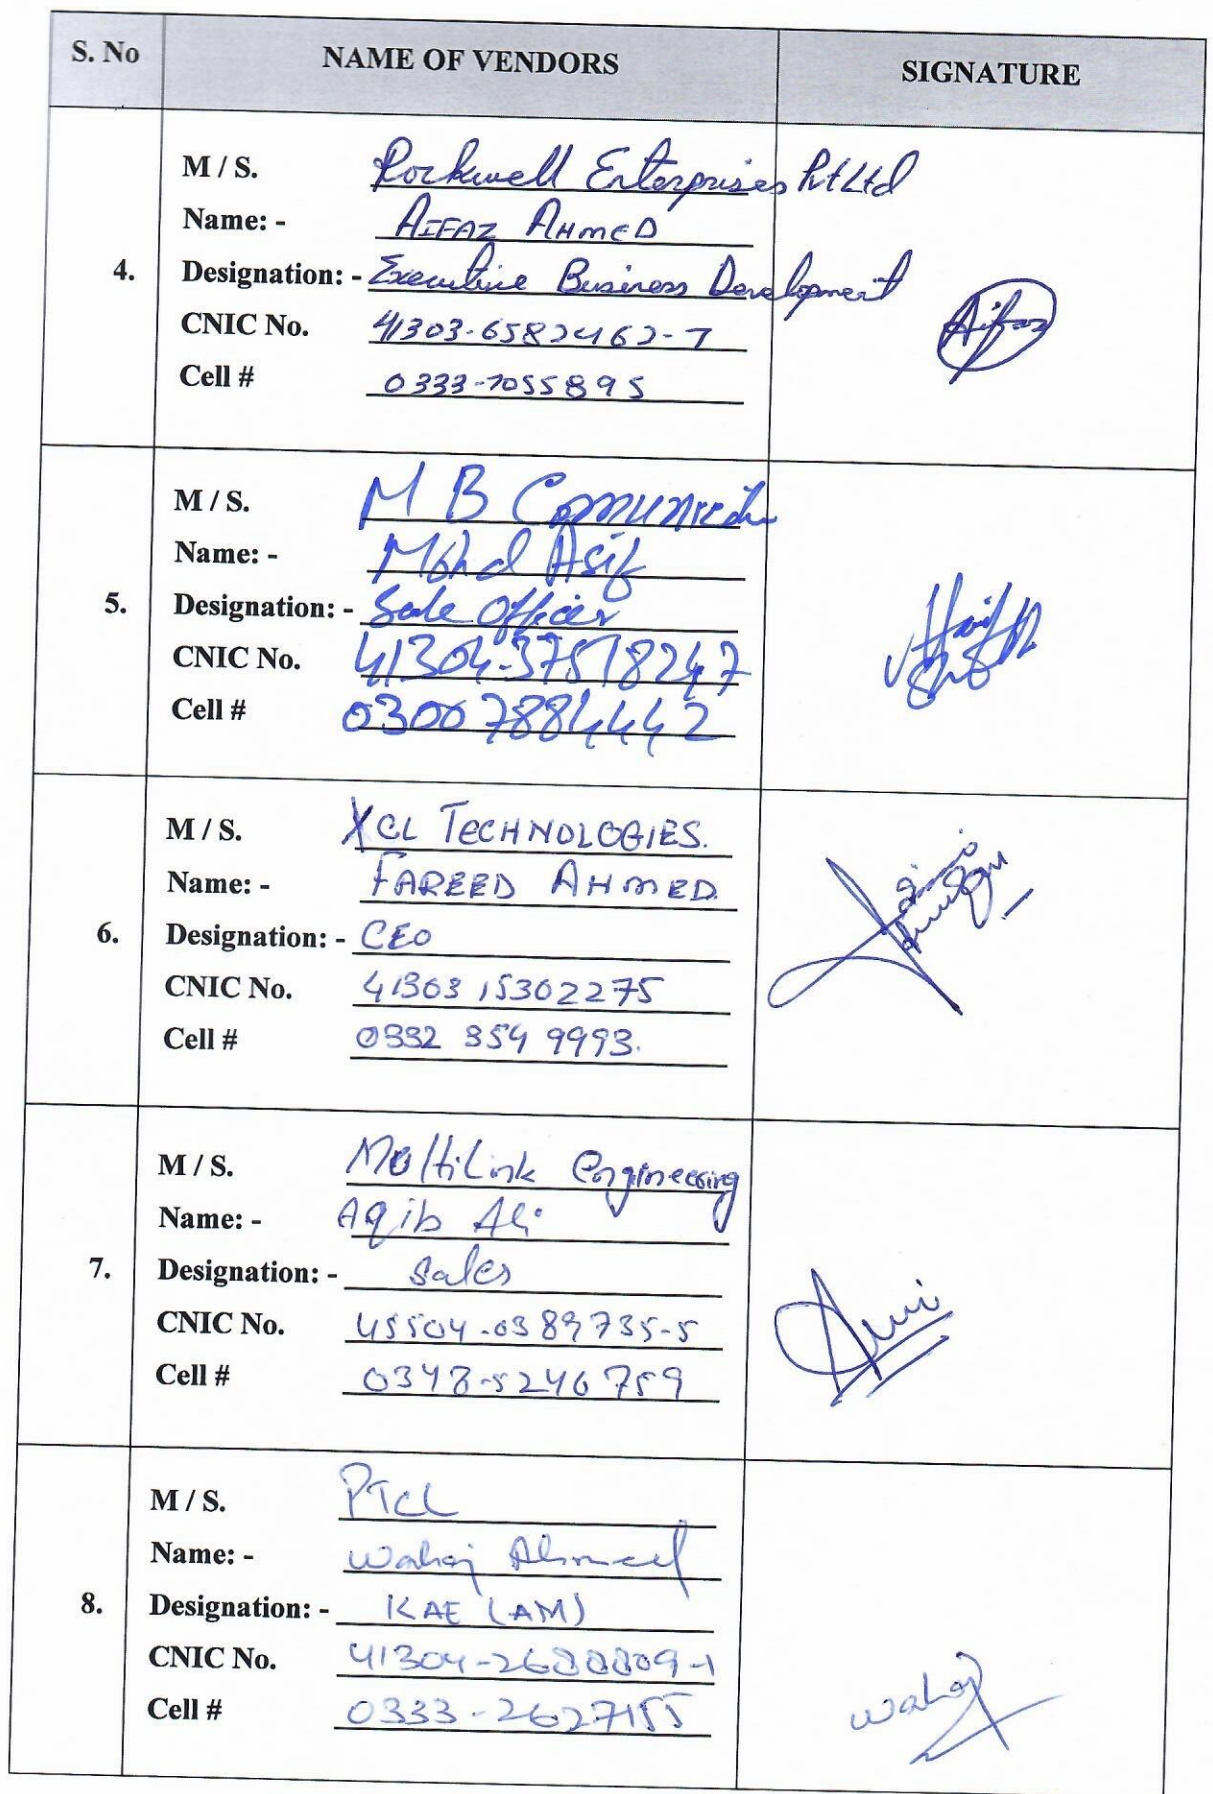 S. No NAME OF VENDORS SIGNATURE
4.
M / S. Rockwell Enterprises Pvt Ltd
Name: - AIFAZ AHMED
Designation: - Executive Business Development
CNIC No. 41303-6582462-7
Cell # 0333-7055895
Aifaz
5.
M / S. M B Comunicatin
Name: - Mohd Asif
Designation: - Sale Officer
CNIC No. 41304-37518247
Cell # 03007884442
6.
M / S. XCL TECHNOLOGIES.
Name: - FAREED AHMED
Designation: - CEO
CNIC No. 41303 15302275
Cell # 0332 354 9993.
7.
M / S. MultiLink Engineering
Name: - Aqib Ali
Designation: - Sales
CNIC No. 45504-0389735-5
Cell # 0348-5246759
8.
M / S. PTCL
Name: - Wahaj Ahmed
Designation: - KAE (AM)
CNIC No. 41304-2688809-1
Cell # 0333-2627155
wahaj